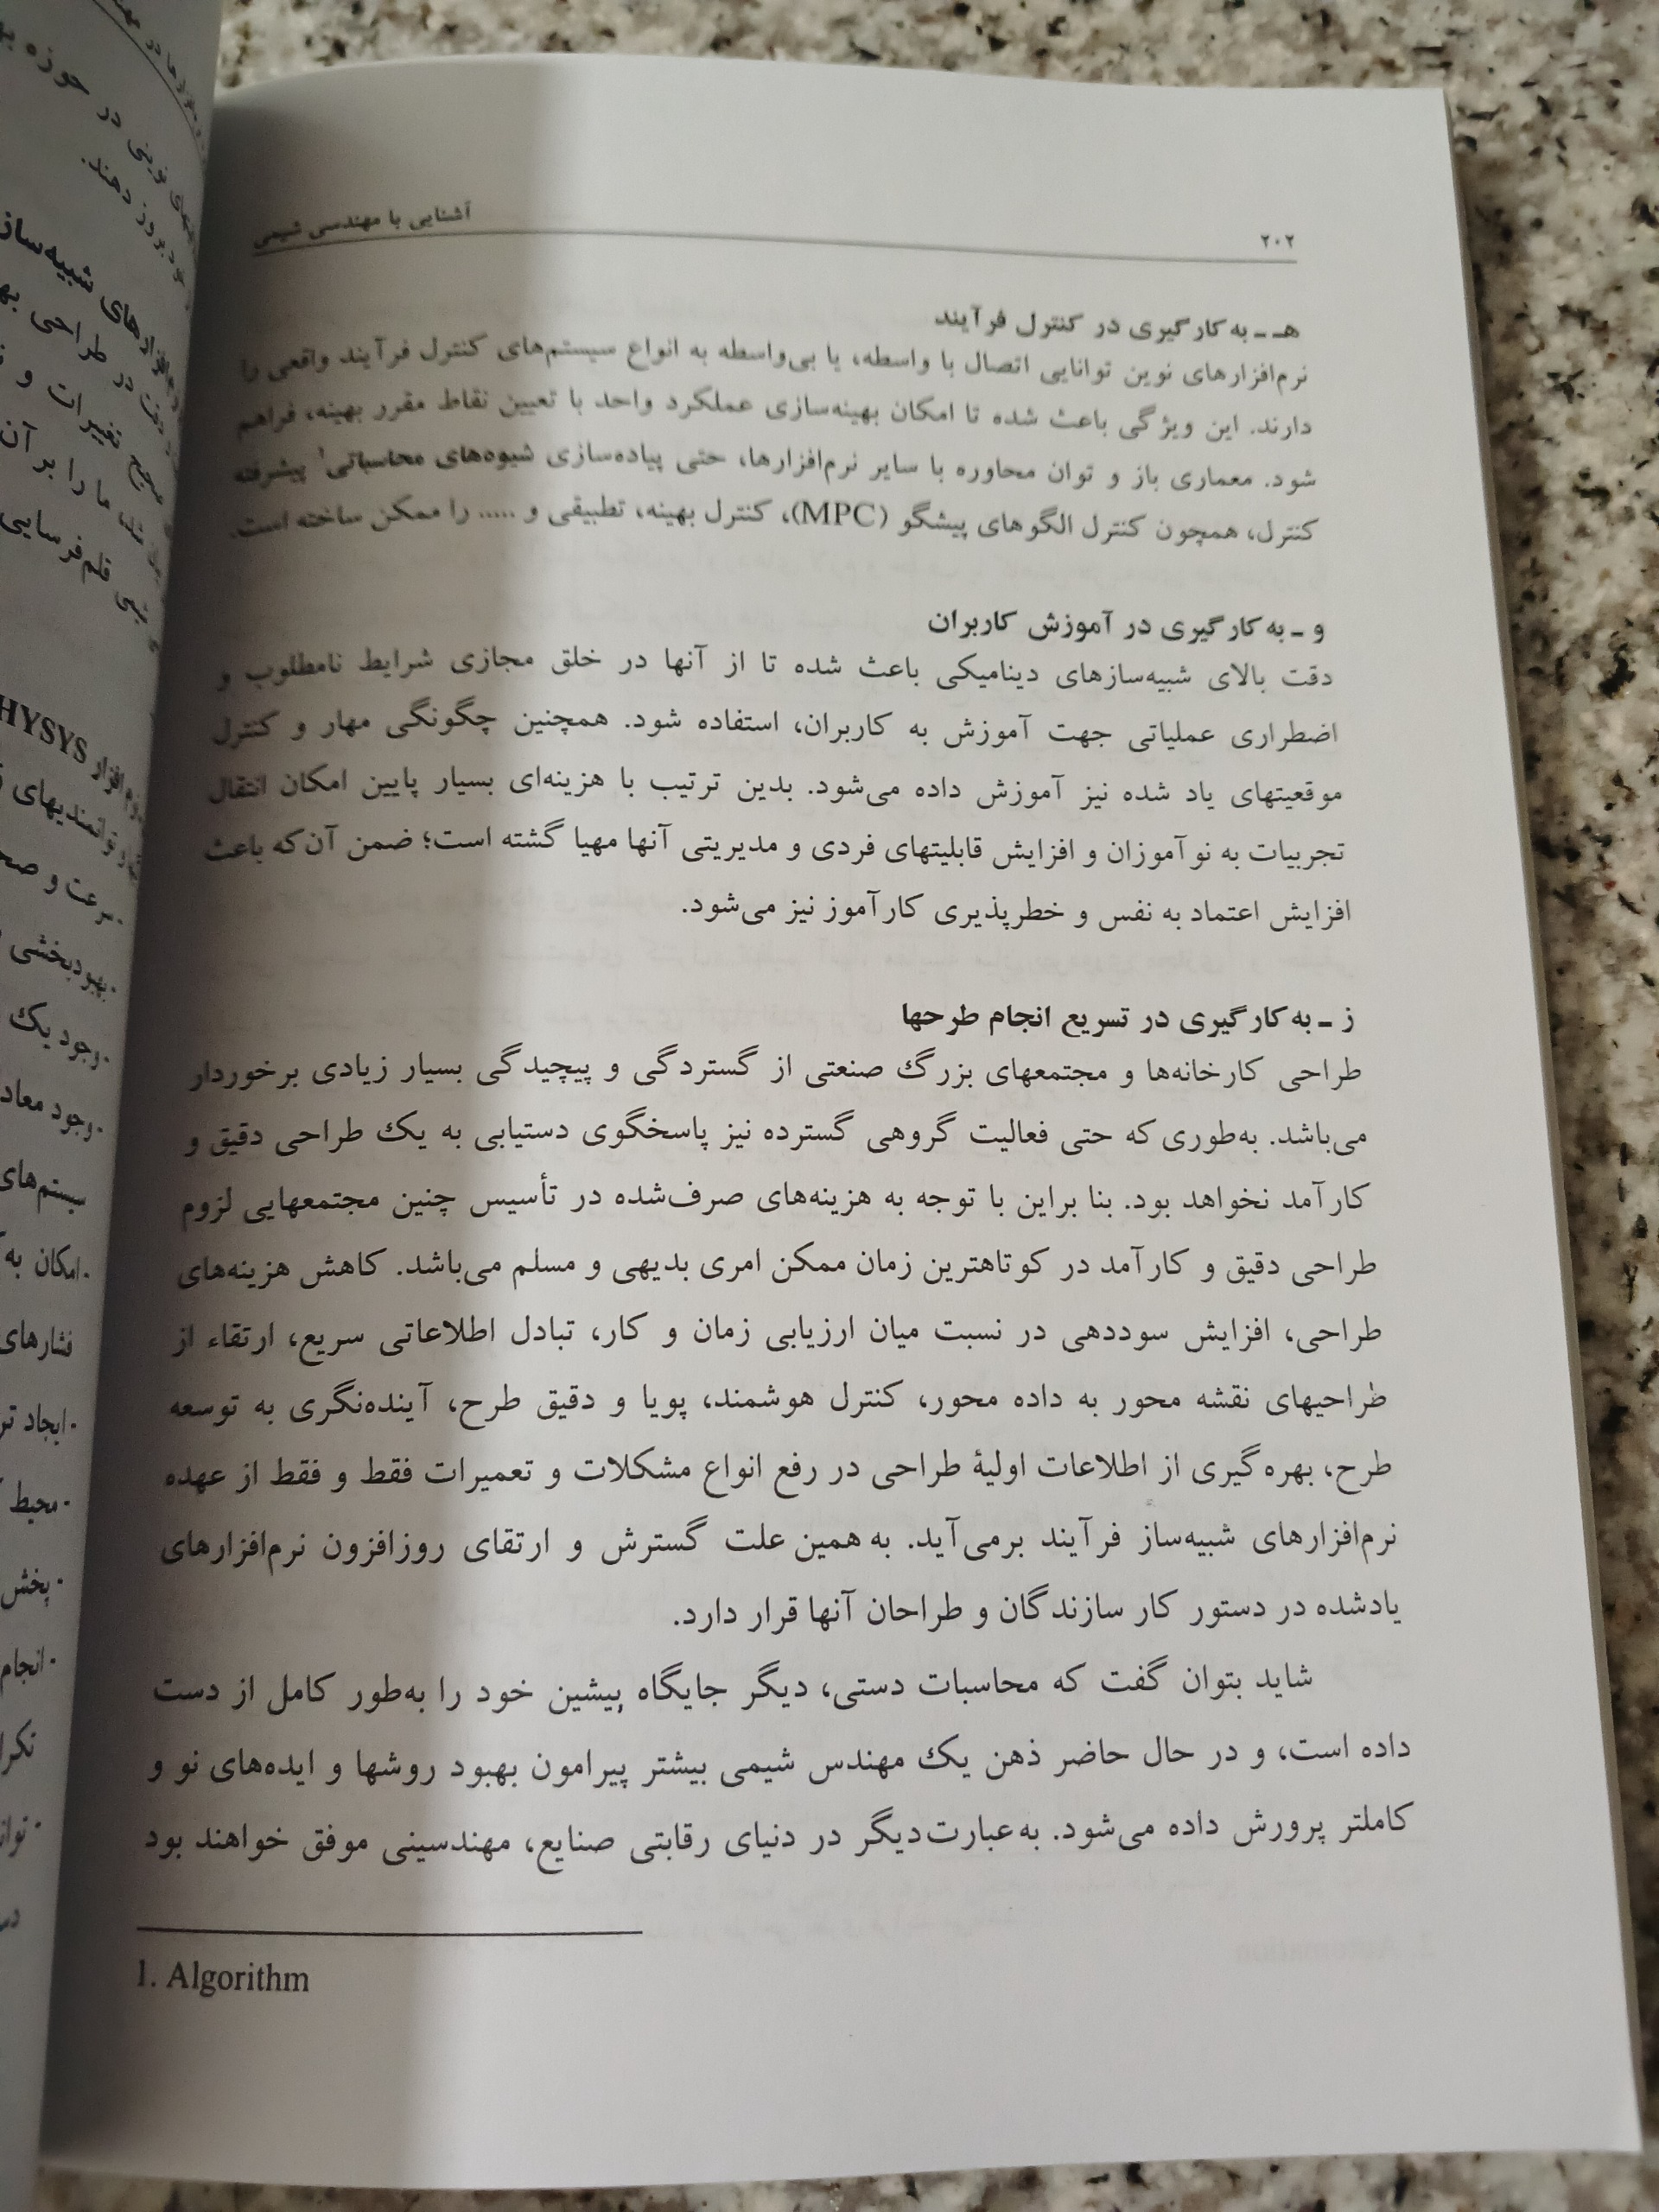 ۲۰۲
آشنایی با مهندسی شیمی
هـ ـ به‌کارگیری در کنترل فرآیند
نرم‌افزارهای نوین توانایی اتصال با واسطه، یا بی‌واسطه به انواع سیستم‌های کنترل فرآیند واقعی را
دارند. این ویژگی باعث شده تا امکان بهینه‌سازی عملکرد واحد با تعیین نقاط مقرر بهینه، فراهم
شود. معماری باز و توان محاوره با سایر نرم‌افزارها، حتی پیاده‌سازی شیوه‌های محاسباتی۱ پیشرفته
کنترل، همچون کنترل الگوهای پیشگو (MPC)، کنترل بهینه، تطبیقی و ..... را ممکن ساخته است.
و ـ به‌کارگیری در آموزش کاربران
دقت بالای شبیه‌سازهای دینامیکی باعث شده تا از آنها در خلق مجازی شرایط نامطلوب و
اضطراری عملیاتی جهت آموزش به کاربران، استفاده شود. همچنین چگونگی مهار و کنترل
موقعیتهای یاد شده نیز آموزش داده می‌شود. بدین ترتیب با هزینه‌ای بسیار پایین امکان انتقال
تجربیات به نوآموزان و افزایش قابلیتهای فردی و مدیریتی آنها مهیا گشته است؛ ضمن آن‌که باعث
افزایش اعتماد به نفس و خطرپذیری کارآموز نیز می‌شود.
ز ـ به‌کارگیری در تسریع انجام طرحها
طراحی کارخانه‌ها و مجتمعهای بزرگ صنعتی از گستردگی و پیچیدگی بسیار زیادی برخوردار
می‌باشد. به‌طوری که حتی فعالیت گروهی گسترده نیز پاسخگوی دستیابی به یک طراحی دقیق و
کارآمد نخواهد بود. بنا براین با توجه به هزینه‌های صرف‌شده در تأسیس چنین مجتمعهایی لزوم
طراحی دقیق و کارآمد در کوتاهترین زمان ممکن امری بدیهی و مسلم می‌باشد. کاهش هزینه‌های
طراحی، افزایش سوددهی در نسبت میان ارزیابی زمان و کار، تبادل اطلاعاتی سریع، ارتقاء از
طراحیهای نقشه محور به داده محور، کنترل هوشمند، پویا و دقیق طرح، آینده‌نگری به توسعه
طرح، بهره‌گیری از اطلاعات اولیۀ طراحی در رفع انواع مشکلات و تعمیرات فقط و فقط از عهده
نرم‌افزارهای شبیه‌ساز فرآیند برمی‌آید. به همین علت گسترش و ارتقای روزافزون نرم‌افزارهای
یادشده در دستور کار سازندگان و طراحان آنها قرار دارد.
شاید بتوان گفت که محاسبات دستی، دیگر جایگاه پیشین خود را به‌طور کامل از دست
داده است، و در حال حاضر ذهن یک مهندس شیمی بیشتر پیرامون بهبود روشها و ایده‌های نو و
کاملتر پرورش داده می‌شود. به‌عبارت‌دیگر در دنیای رقابتی صنایع، مهندسینی موفق خواهند بود
1. Algorithm